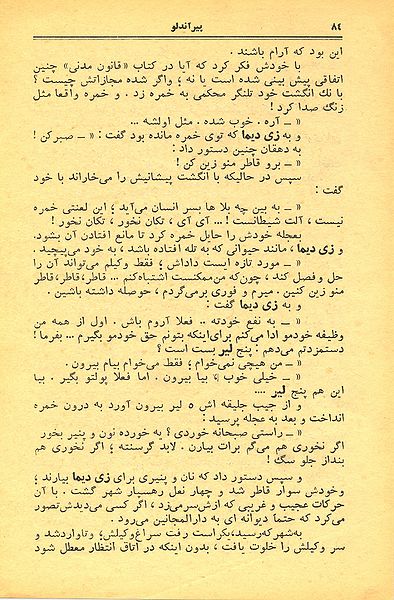 ۸۴ پیرآندلو
این بود که آرام باشند .
با خودش فکر کرد که آیا در کتاب «قانون مدنی» چنین
اتفاقی پیش بینی شده است یا نه ؛ واگر شده مجازاتش چیست ؟
با نك انگشت خود تلنگر محکمی به خمره زد . و خمره واقعا مثل
زنگ صدا کرد !
« ـ آره . خوب شده . مثل اولشه ...
و به زی دیما که توی خمره مانده بود گفت : « ـ صبرکن !
به دهقان چنین دستور داد :
« ـ برو قاطر منو زین کن !
سپس در حالیکه با انگشت پیشانیش را می‌خاراند با خود
گفت :
« ـ به بین چه بلا ها بسر انسان می‌آید ؛ این لعنتی خمره
نیست ، آلت شیطانست ! ... آی آی ، تکان نخور ، تکان نخور !
بعجله خودش را حایل خمره کرد تا مانع افتادن آن بشود.
و زی دیما ، مانند حیوانی که به تله افتاده باشد ، به خود می‌پیچید .
« ـ مورد تازه ایست داداش ؛ فقط وکیلم می‌تواند آن را
حل و فصل کند ، چون‌که من‌ممکنست اشتباه‌کنم ... قاطر،قاطر،قاطر
منو زین کنین . میرم و فوری برمی‌گردم ، حوصله داشته باشین .
و به زی دیما گفت :
« ـ به نفع خودته .. فعلا آروم باش . اول از همه من
وظیفه خودمو ادا می‌کنم برای‌اینکه بتونم حق خودمو بگیرم ... بفرما ؛
دستمزدتم می‌دهم : پنج لیر بست است ؟
« ـ من هیچی نمی‌خوام ؛ فقط می‌خوام بیام بیرون .
« ـ خیلی خوب ؛ بیا بیرون . اما فعلا پولتو بگیر . بیا
این هم پنج لیر ....
و از جیب جلیقه اش ۵ لیر بیرون آورد به درون خمره
انداخت و بعد به عجله پرسید :
« ـ راستی صبحانه خوردی ؟ یه خورده نون و پنیر بخور
اگر نخوری هم می‌گم برات بیارن . لابد گرسنته ؛ اگر نخوری هم
بنداز جلو سگ !
و سپس دستور داد که نان و پنیری برای زی دیما بیارند ؛
وخودش سوار قاطر شد و چهار نعل رهسپار شهر گشت . با آن
حرکات عجیب و غریبی که ازش‌سرمی‌زد ، اگر کسی می‌دیدش‌تصور
می‌کرد که حتماً دیوانه ای به دارالمجانین می‌رود .
به‌شهرکه‌رسید،یکراست رفت سراغ‌وکیلش؛ وتاواردشد و
سر وکیلش را خلوت یافت ، بدون اینکه در اتاق انتظار معطل شود